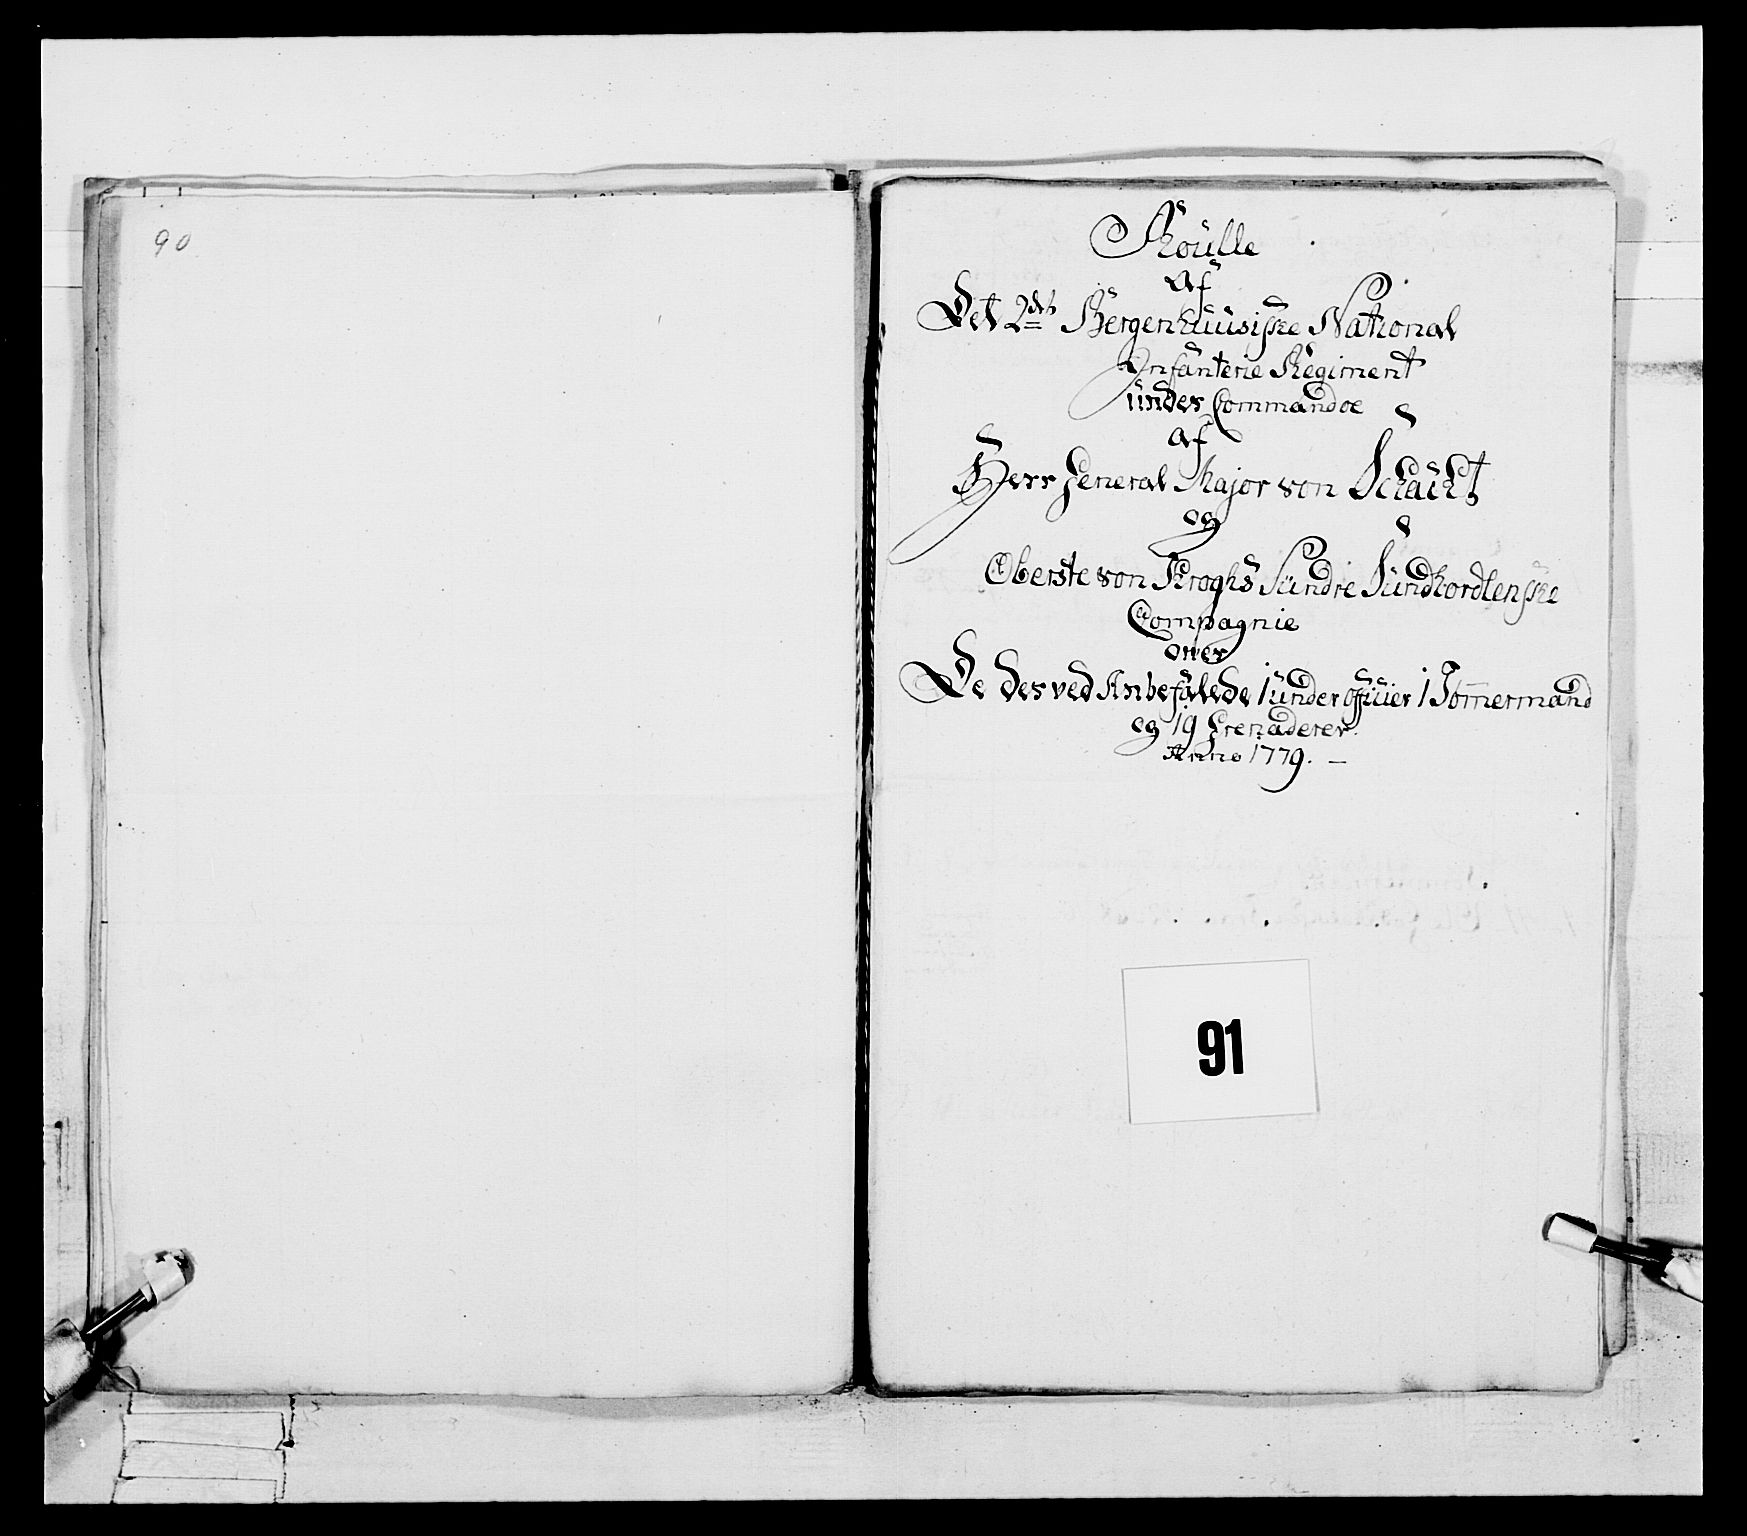 90
Roulle
Af
Det 2det Bergenhuusiske National
Infanterie Regiment
under Commandoe
af
Herr General Major von Schacht
og
Oberste von Kroghs Sündre Sündhordlenske
Compagnie
over
De derved Anbefalede 1 under officier 1 Tom̄ermand
og 19 Grenaderer.
Anno 1779. —
91